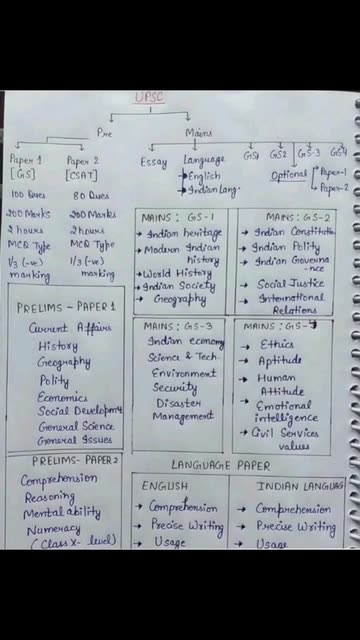 UPSC
Pre
Mains
Paper 1
[GS]
Paper 2
[CSAT]
100 Ques
80 Ques
200 Marks
200 Marks
2 hours
2 hours
MCQ Type
MCQ Type
1/3 (-ve)
marking
1/3 (-ve)
marking
Essay
Language
→ English
→ Indian Lang.
GS1
GS2
GS-3
GS4
Optional
Paper-1
Paper-2
MAINS: GS-1
→ Indian heritage
→ Modern Indian
history
→ World History
→ Indian Society
→ Geography
MAINS: GS-2
→ Indian Constitution
→ Indian Polity
→ Indian Governa
-nce
→ Social Justice
→ International
Relations
PRELIMS - PAPER 1
Current Affairs
History
Geography
Polity
Economics
Social Developmt
General Science
General Issues
MAINS: GS-3
Indian economy
Science & Tech.
Environment
Security
Disaster
Management
MAINS: GS-4
→ Ethics
→ Aptitude
→ Human
Attitude
→ Emotional
intelligence
→ Civil Services
values
PRELIMS - PAPER 2
Comprehension
Reasoning
Mental ability
Numeracy
(Class X- level)
LANGUAGE PAPER
ENGLISH
→ Comprehension
→ Precise Writing
→ Usage
INDIAN LANGUAG
→ Comprehension
→ Precise Writing
→ Usage